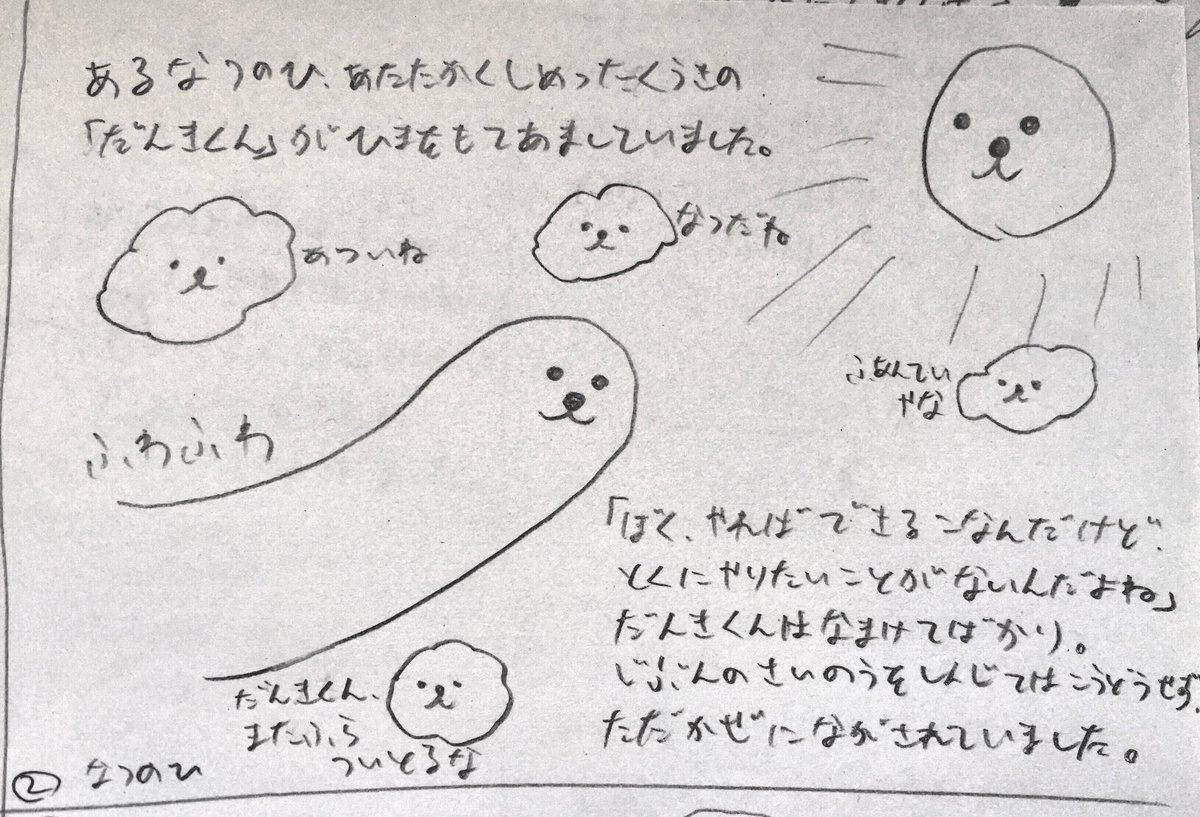 あるなつのひ、あたたかくしめったくうきの
「だんきくん」がひまをもてあましていました。
あついね
なつだね
ふあんてい
やな
ふわふわ
「ぼく、やればできるこなんだけど、
とくにやりたいことがないんだよね」
だんきくんはなまけてばかり。
じぶんのさいのうをしんじてはこうどうせず、
ただかぜにながされていました。
だんきくん、
またふら
ついとるな
② なつのひ